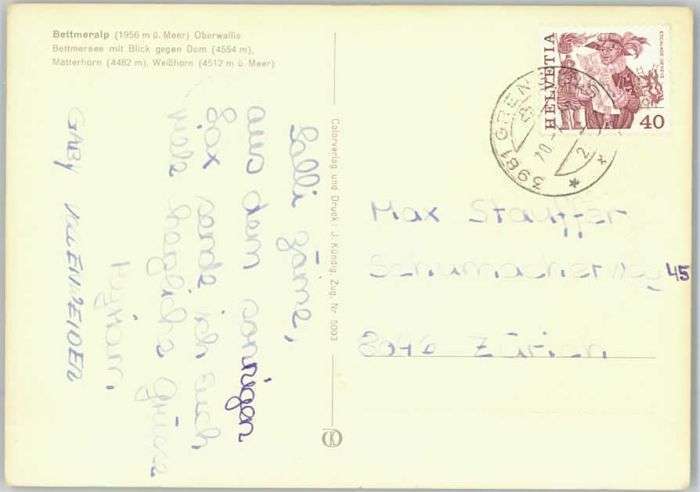 Bettmeralp (1956 m ü. Meer) Oberwallis
Bettmersee mit Blick gegen Dom (4554 m),
Matterhorn (4482 m), Weißhorn (4512 m ü. Meer)
HELVETIA
40
3981 GREN
Colorverlag und Druck J. Kündig, Zug, Nr. 5003
Salli zäme,
aus dem sonnigen
sende ich euch
viele herzliche Grüsse
Myriam,
GABY
Max Stauffer
Schumacherweg 45
8046 Zürich